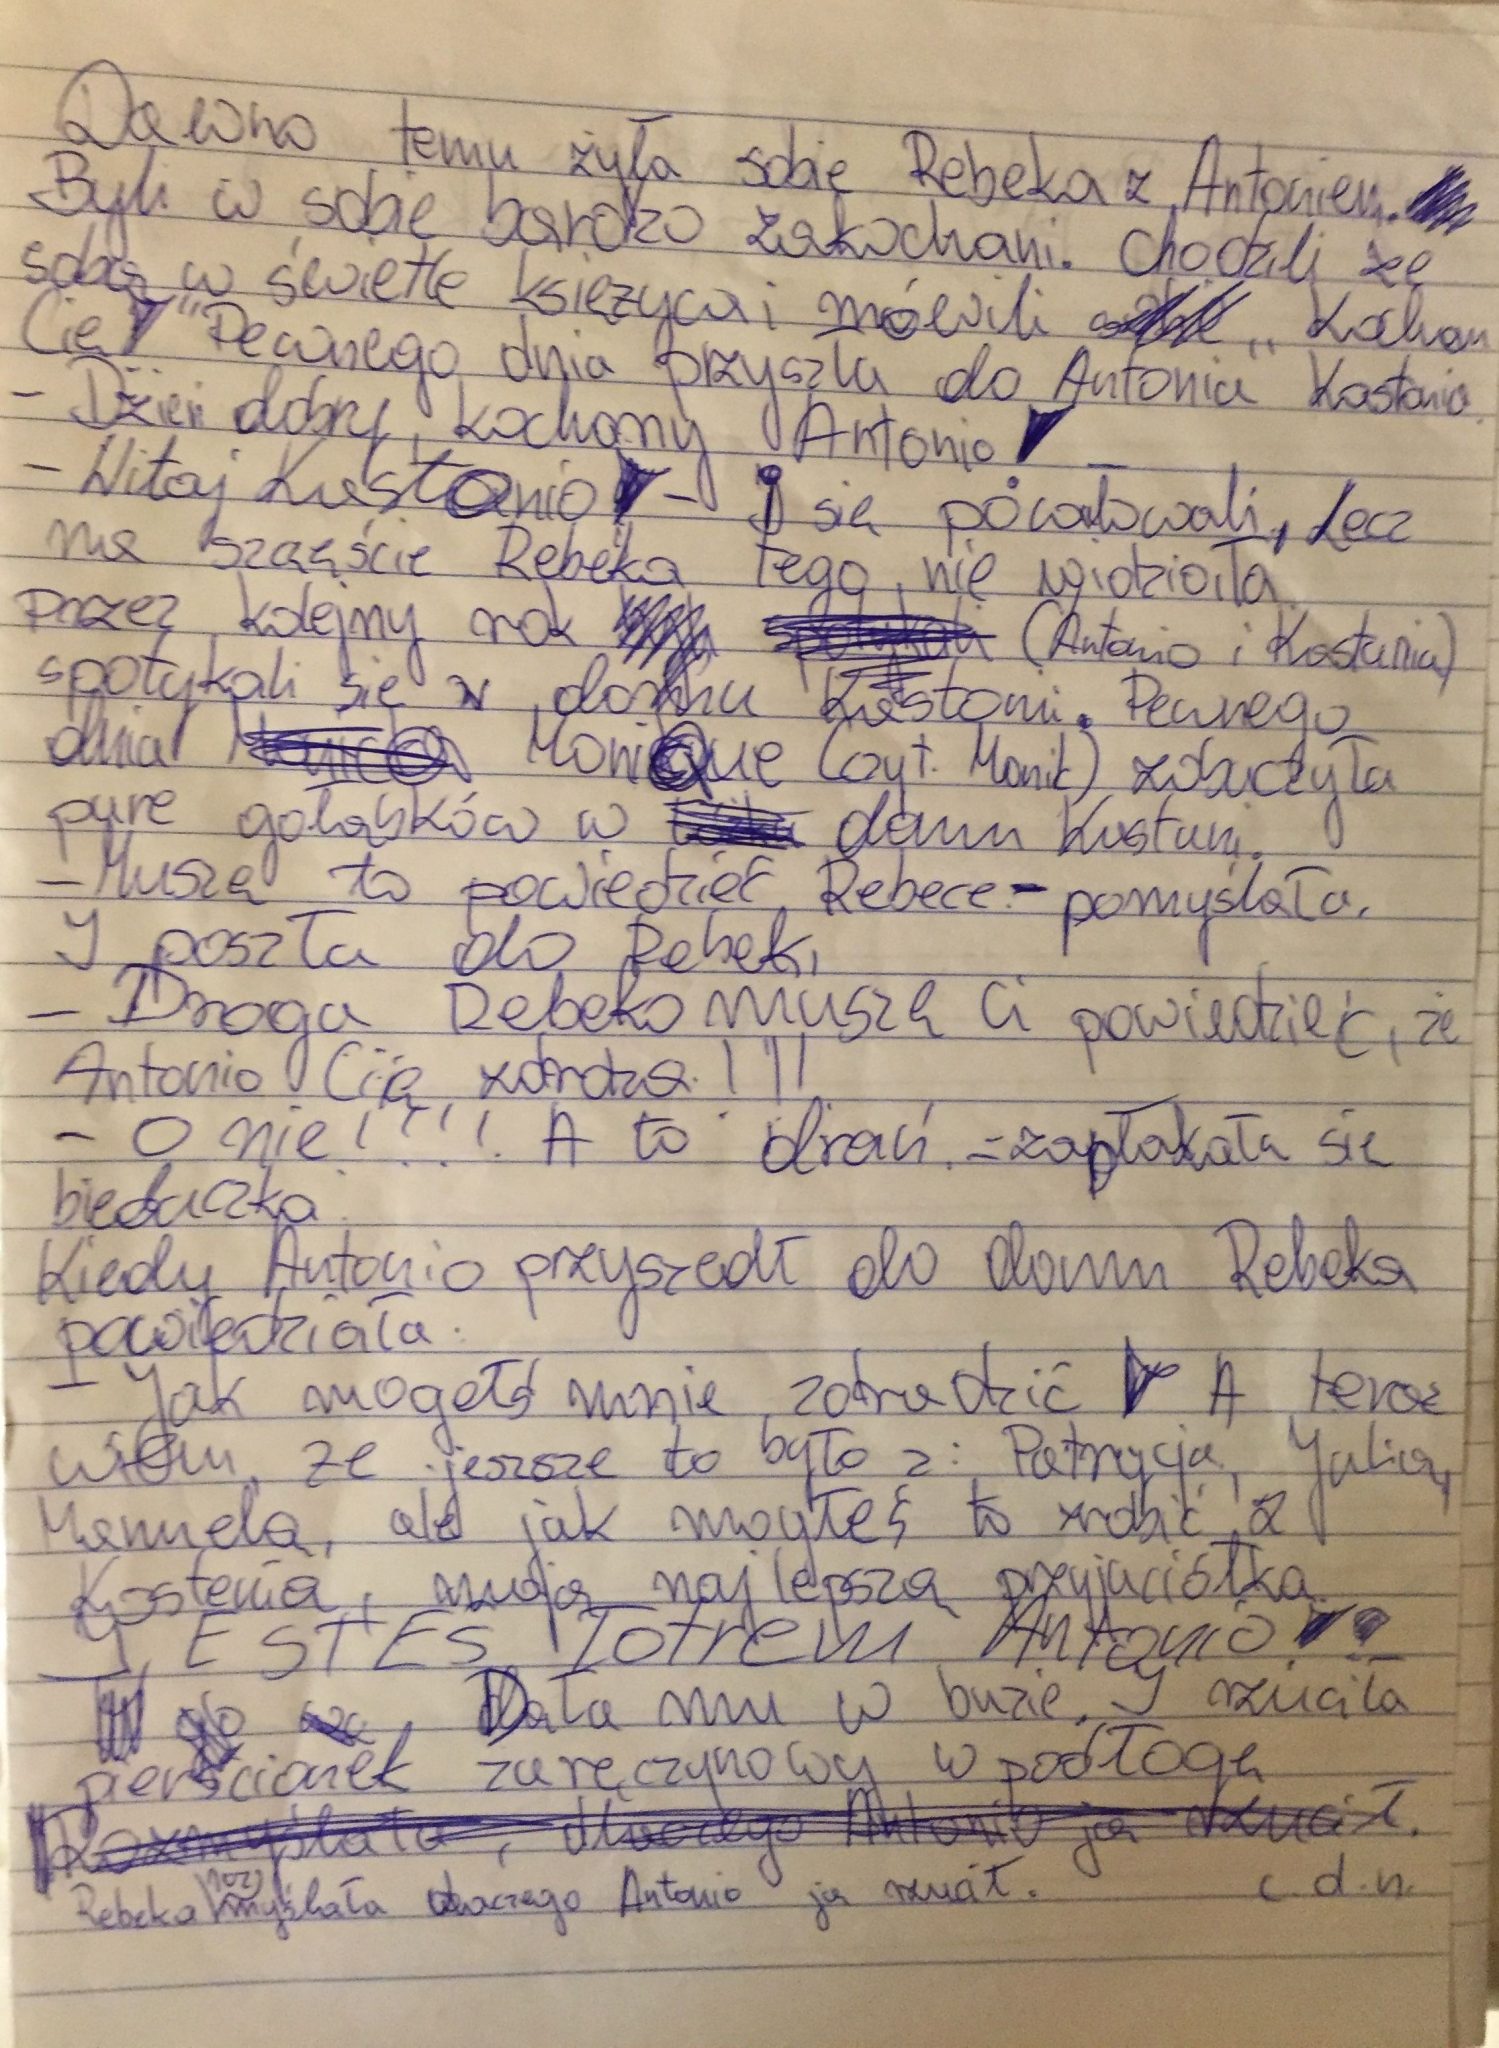 Dawno temu żyła sobie Rebeka z Antoniem.
Byli w sobie bardzo zakochani. Chodzili ze
sobą w świetle księżyca i mówili „Kocham
Cię!" Pewnego dnia przyszła do Antonia Kastania.
- Dzień dobry, kochany Antonio!
- Witaj Kastanio! - I się pocałowali, Lecz
na szczęście Rebeka tego nie widziała.
Przez kolejny rok (Antonio i Kastania)
spotykali się w domu Kastani. Pewnego
dnia Monique (czyt. Monik) zobaczyła
parę gołąbków w domu Kastani.
- Muszę to powiedzieć Rebece - pomyślała.
I poszła do Rebeki
- Droga Rebeko muszę Ci powiedzieć, że
Antonio Cię zdradza!!!
- O nie!!!! A to drań. - zapłakała się
biedaczka.
Kiedy Antonio przyszedł do domu Rebeka
powiedziała:
- Jak mogłeś mnie zdradzić! A teraz
wiem, że jeszsze to było z: Patrycją, Julią,
Manuelą, ale jak mogłeś to zrobić z
Kastenią, moją najlepszą przyjaciółką
JESTEŚ łotrem Antonio!
Dała mu w buzie. I rzuciła
pierścionek zaręczynowy w podłogę
Rozmyślała, dlaczego Antonio ją rzucił.
Rebeka rozmyślała dlaczego Antonio ją rzucił. c.d.n.